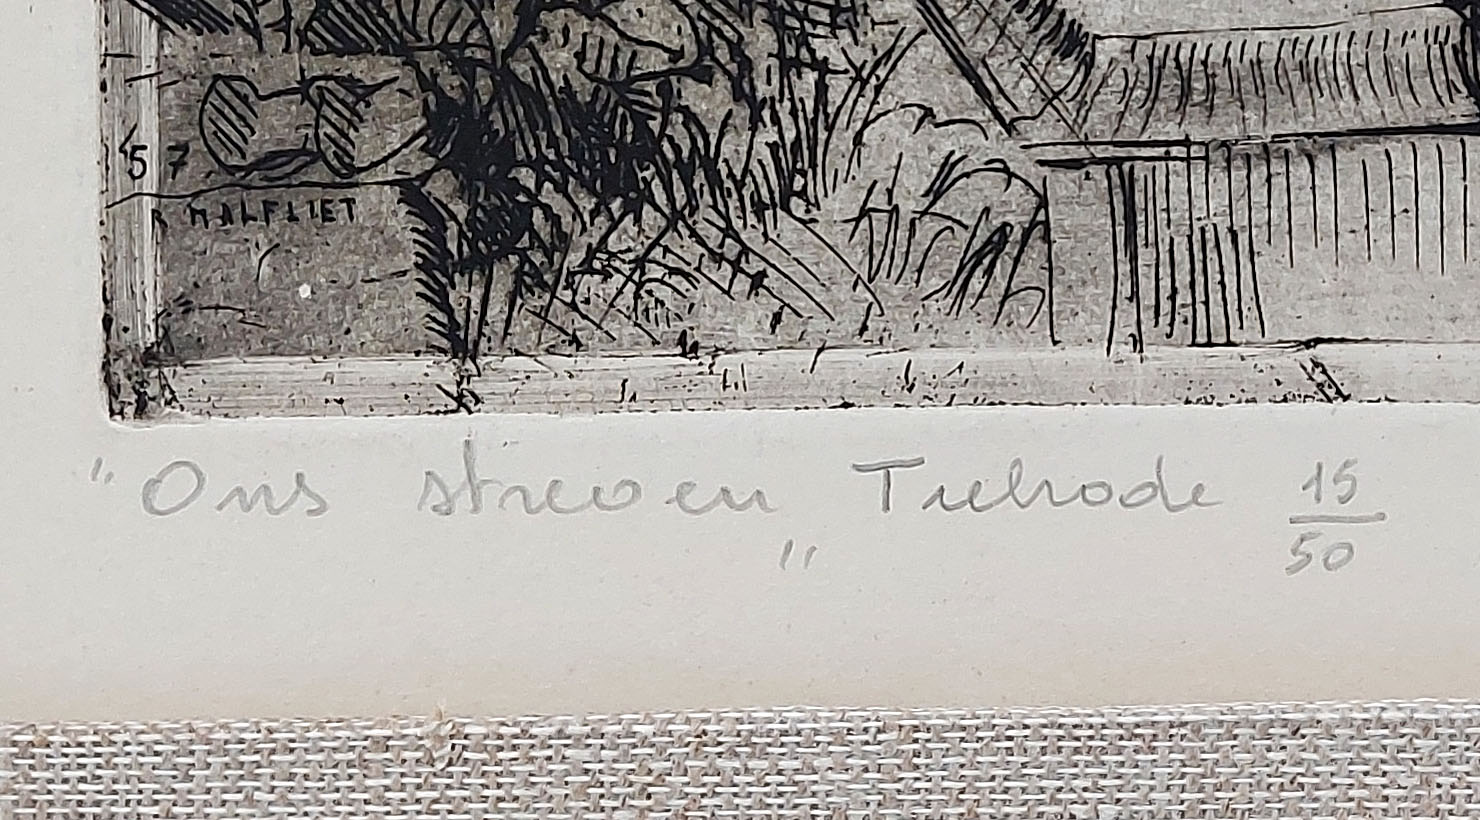 '57
MALFLIET
"Ons streven" Tielrode 15/50